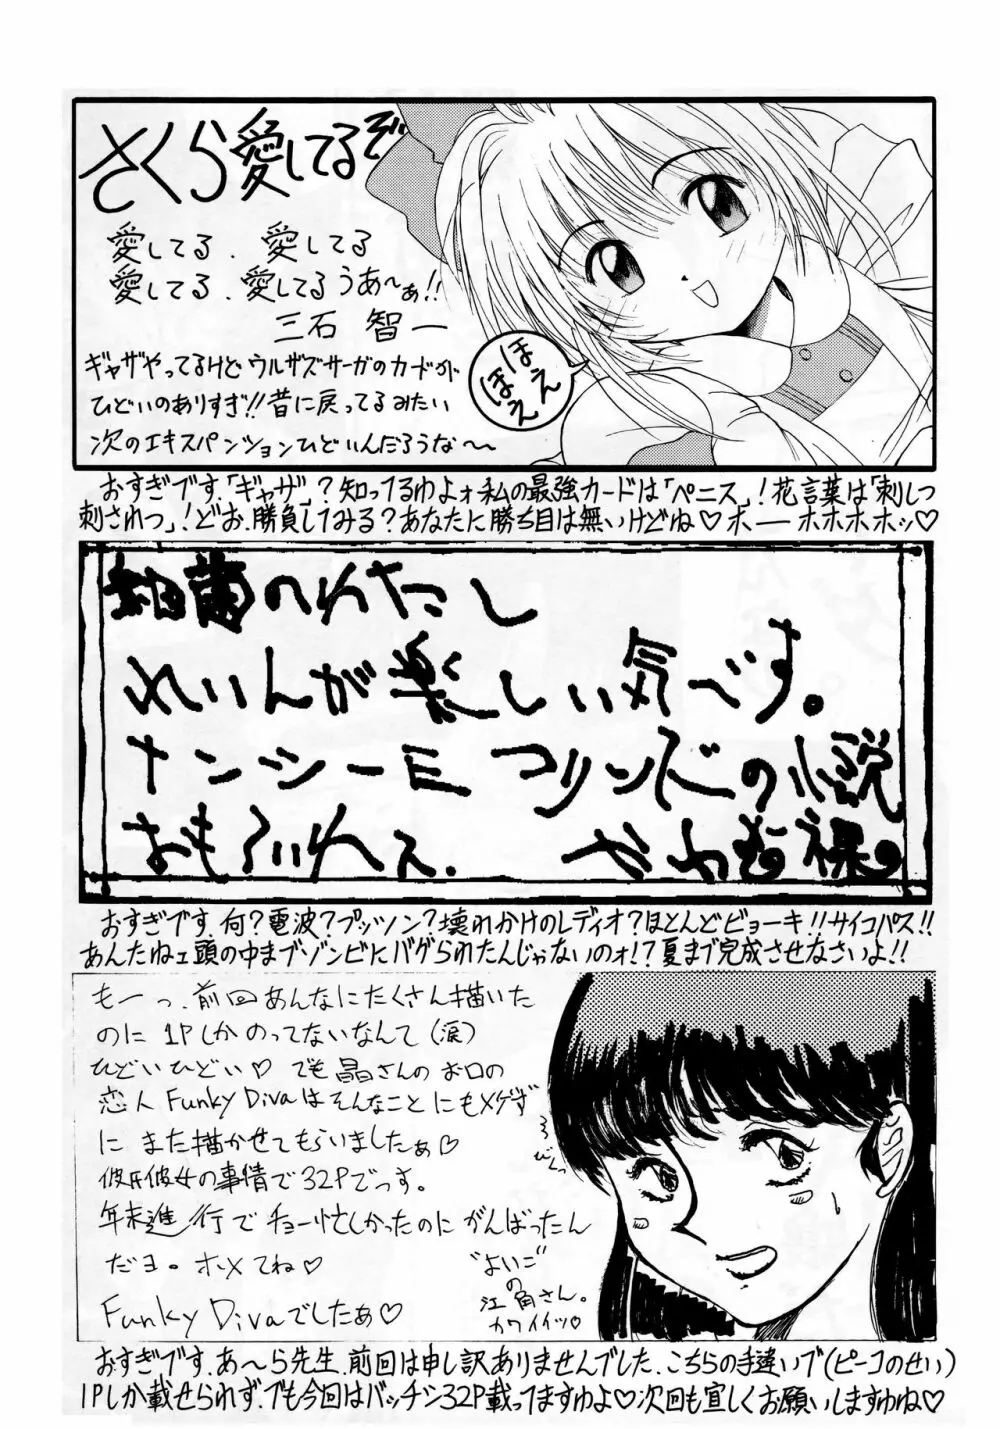 さくら愛してるぞ
愛してる.愛してる
愛してる.愛してるうあ〜ぁ!!
三石 智一
ギャザやってるけど ウルザズサーガのカードが
ひどいのありすぎ!!昔に戻ってるみたい
次のエキスパンションひどいんだろうな〜
ほえ
ほえ
おすぎです.「ギャザ」?知ってるわよォ私の最強カードは「ペニス」!花言葉は「刺しつ
刺されつ」!どお.勝負してみる?あなたに勝ち目は無いけどね♡ホーホホホホッ♡
細菌のわたし
れいんが楽しい気べす。
ナンシーE コリンズの小説
おもろいわス.
おすぎです.何?電波?プッツン?壊れかけのレディオ?ほとんどビョーキ!!サイコパス!!
あんたねェ頭の中までゾンビにバゲられたんじゃないのォ!?夏まで完成させなさいよ!!
もーっ.前回あんなにたくさん描いた
のに 1Pしかのってないなんて(涙)
ひどいひどい♡ でも晶さんのお口の
恋人 Funky Divaはそんなことにもメゲず
に また描かせてもらいましたぁ♡
彼氏彼女の事情で32Pでっす。
年末進行でチョー忙しかったのに がんばったん
だヨ。ホメてね♡
Funky Divaでしたぁ♡
びくっ
"よいこ"
の
江角さん。
カワイイッ♡
おすぎです.あ〜ら先生.前回は申し訳ありませんでした.こちらの手違いで(ピーコのせい)
1Pしか載せられず.でも今回はバッチシ32P載ってますわよ♡次回も宜しくお願いしますわね♡